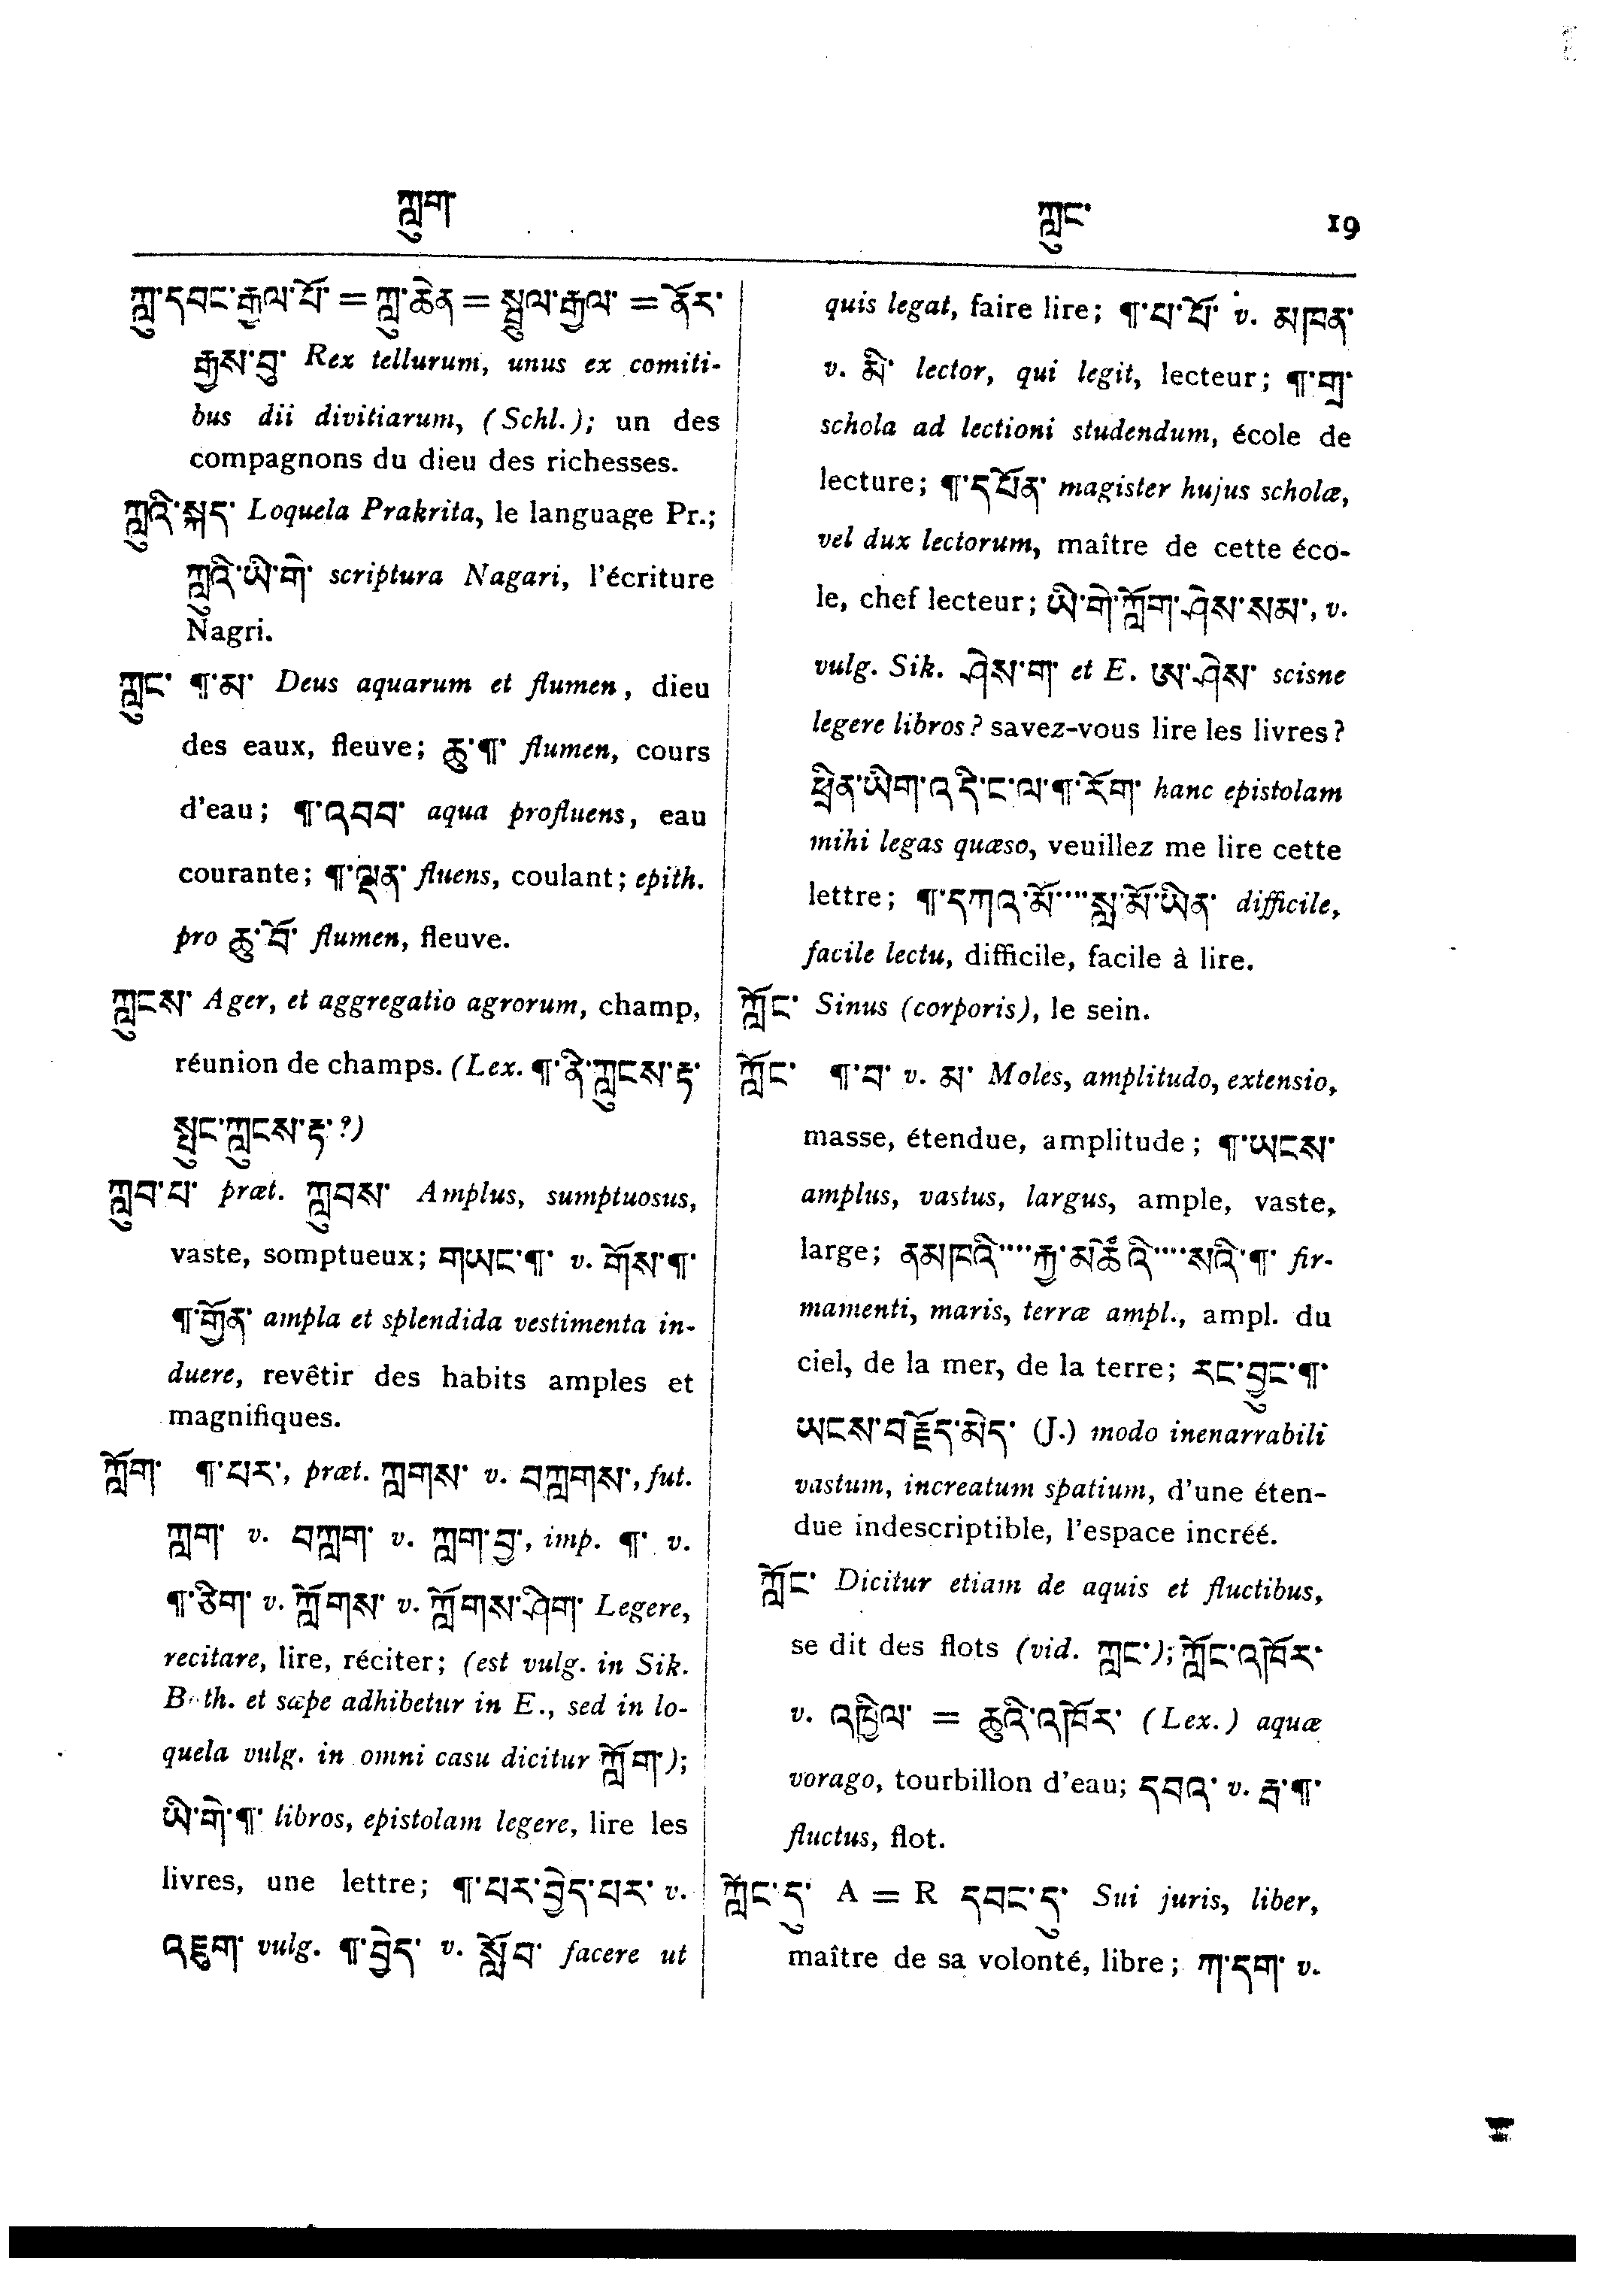 ཀླུག
ཀླུང་
19
ཀླུ་དབང་རྒྱལ་པོ་ = ཀླུ་ཆེན = སྦྲུལ་རྒྱལ་ = ནོར་
རྒྱས་བུ་ Rex tellurum, unus ex comiti-
bus dii divitiarum, (Schl.); un des
compagnons du dieu des richesses.
ཀླུའི་སྐད་ Loquela Prakrita, le language Pr.;
ཀླུའི་ཡི་གེ་ scriptura Nagari, l'écriture
Nagri.
ཀླུང་ ¶་མ་ Deus aquarum et flumen, dieu
des eaux, fleuve; ཆུ་¶་ flumen, cours
d'eau; ¶་འབབ་ aqua profluens, eau
courante; ¶་ལྡན་ fluens, coulant; epith.
pro ཆུ་བོ་ flumen, fleuve.
ཀླུངས་ Ager, et aggregatio agrorum, champ,
réunion de champs. (Lex. ¶་ནི་ཀླུངས་རྟ་
སྤུང་ཀླུངས་རྟ་?)
ཀླུབ་པ་ præt. ཀླུབས་ Amplus, sumptuosus,
vaste, somptueux; གཡང་¶་ v. གོས་¶་
¶་གྱོན་ ampla et splendida vestimenta in-
duere, revêtir des habits amples et
magnifiques.
ཀློག་ ¶་པར་, præt. ཀླགས་ v. བཀླགས་, fut.
ཀླག་ v. བཀླག་ v. ཀླག་བྱ་, imp. ¶་ v.
¶་ཅིག་ v. ཀློགས་ v. ཀློགས་ཤིག་ Legere,
recitare, lire, réciter; (est vulg. in Sik.
B th. et sæpe adhibetur in E., sed in lo-
quela vulg. in omni casu dicitur ཀློག་);
ཡི་གེ་¶་ libros, epistolam legere, lire les
livres, une lettre; ¶་པར་བྱེད་པར་ v.
འཇུག་ vulg. ¶་བྱེད་ v. སློབ་ facere ut
quis legat, faire lire; ¶་པ་པོ་ v. མཁན་
v. མི་ lector, qui legit, lecteur; ¶་གྲྭ་
schola ad lectioni studendum, école de
lecture; ¶་དཔོན་ magister hujus scholæ,
vel dux lectorum, maître de cette éco-
le, chef lecteur; ཡི་གེ་ཀློག་ཤེས་སམ་, v.
vulg. Sik. ཤེས་ག་ et E. ཨ་ཤེས་ scisne
legere libros? savez-vous lire les livres?
ཕྲིན་ཡིག་འདི་ང་ལ་¶་རོག་ hanc epistolam
mihi legas quæso, veuillez me lire cette
lettre; ¶་དཀའ་མོ་···སླ་མོ་ཡིན་ difficile,
facile lectu, difficile, facile à lire.
ཀློང་ Sinus (corporis), le sein.
ཀློང་ ¶་བ་ v. མ་ Moles, amplitudo, extensio,
masse, étendue, amplitude; ¶་ཡངས་
amplus, vastus, largus, ample, vaste,
large; ནམཁའི་···རྒྱ་མཚོའི་···སའི་¶་ fir-
mamenti, maris, terræ ampl., ampl. du
ciel, de la mer, de la terre; རང་བྱུང་¶་
ཡངས་བརྗོད་མེད་ (J.) modo inenarrabili
vastum, increatum spatium, d'une éten-
due indescriptible, l'espace incréé.
ཀློང་ Dicitur etiam de aquis et fluctibus,
se dit des flots (vid. ཀླང་); ཀློང་འཁོར་
v. འཁྱིལ་ = ཆུའི་འཁོར་ (Lex.) aquæ
vorago, tourbillon d'eau; དབའ་ v. རྦ་¶་
fluctus, flot.
ཀློང་དུ་ A = R དབང་དུ་ Sui juris, liber,
maître de sa volonté, libre; ཀ་དག་ v.